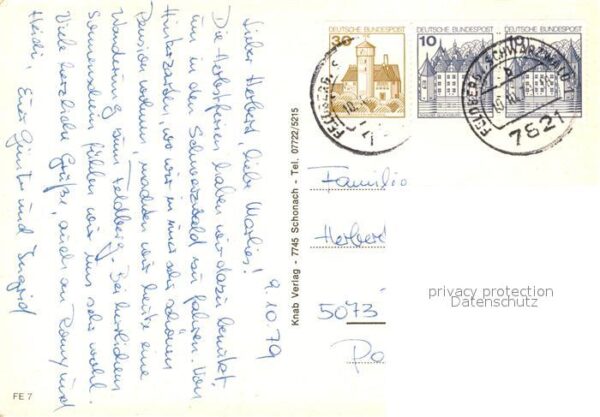 9.10.79
Lieber Herbert, liebe Marlies!
Die Herbstferien haben wir dazu benützt
um in den Schwarzwald zu fahren. Von
Hinterzarten, wo wir in einer sehr schönen
Pension wohnen, machten wir heute eine
Wanderung zum Feldberg. Bei herrlichem
Sonnenschein fühlen wir uns sehr wohl.
Viele herzliche Grüße, auch an Romy und
Heidi, Eure Günter und Ingrid
FE 7
Knab Verlag - 7745 Schonach - Tel. 07722/5215
30
DEUTSCHE BUNDESPOST
10
DEUTSCHE BUNDESPOST
10
DEUTSCHE BUNDESPOST
FELDBERG, SCHWARZWALD 1
b
7821
Familie
Herbert
5073
privacy protection
Datenschutz